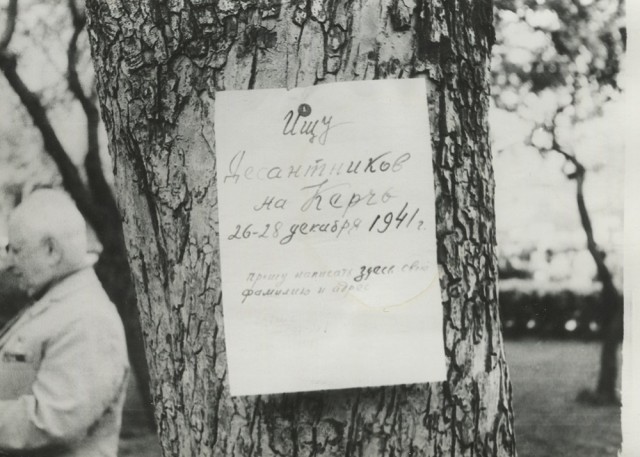 Ищу
Десантников
на Керчь
26-28 декабря 1941 г.
прошу написать здесь свою
фамилию и адрес